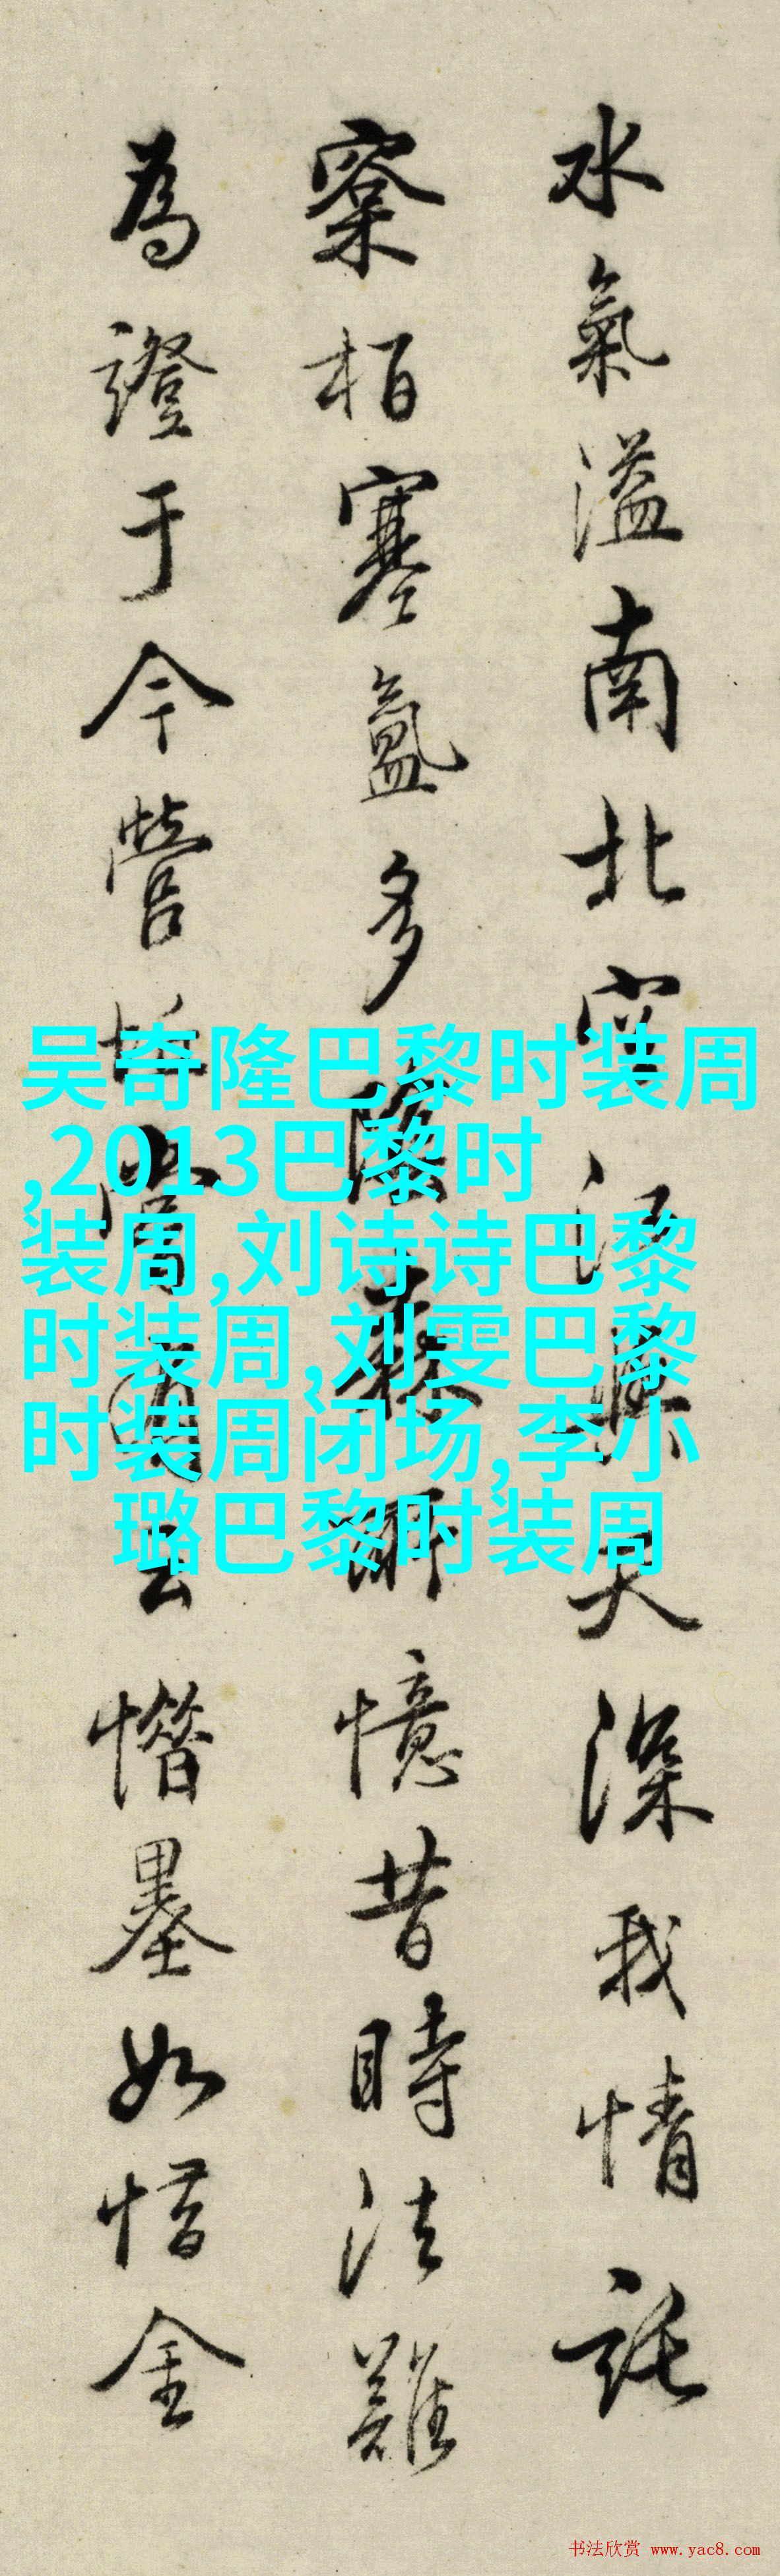 水氣溢南北空深我情託
寮栢塞氳多憶昔時法難
為證于今營云憯墨如惜金
吴奇隆巴黎时装周
,2013巴黎时
装周,刘诗诗巴黎
时装周,刘雯巴黎
时装周闭场,李小
璐巴黎时装周
书法欣赏 www.yac8.com